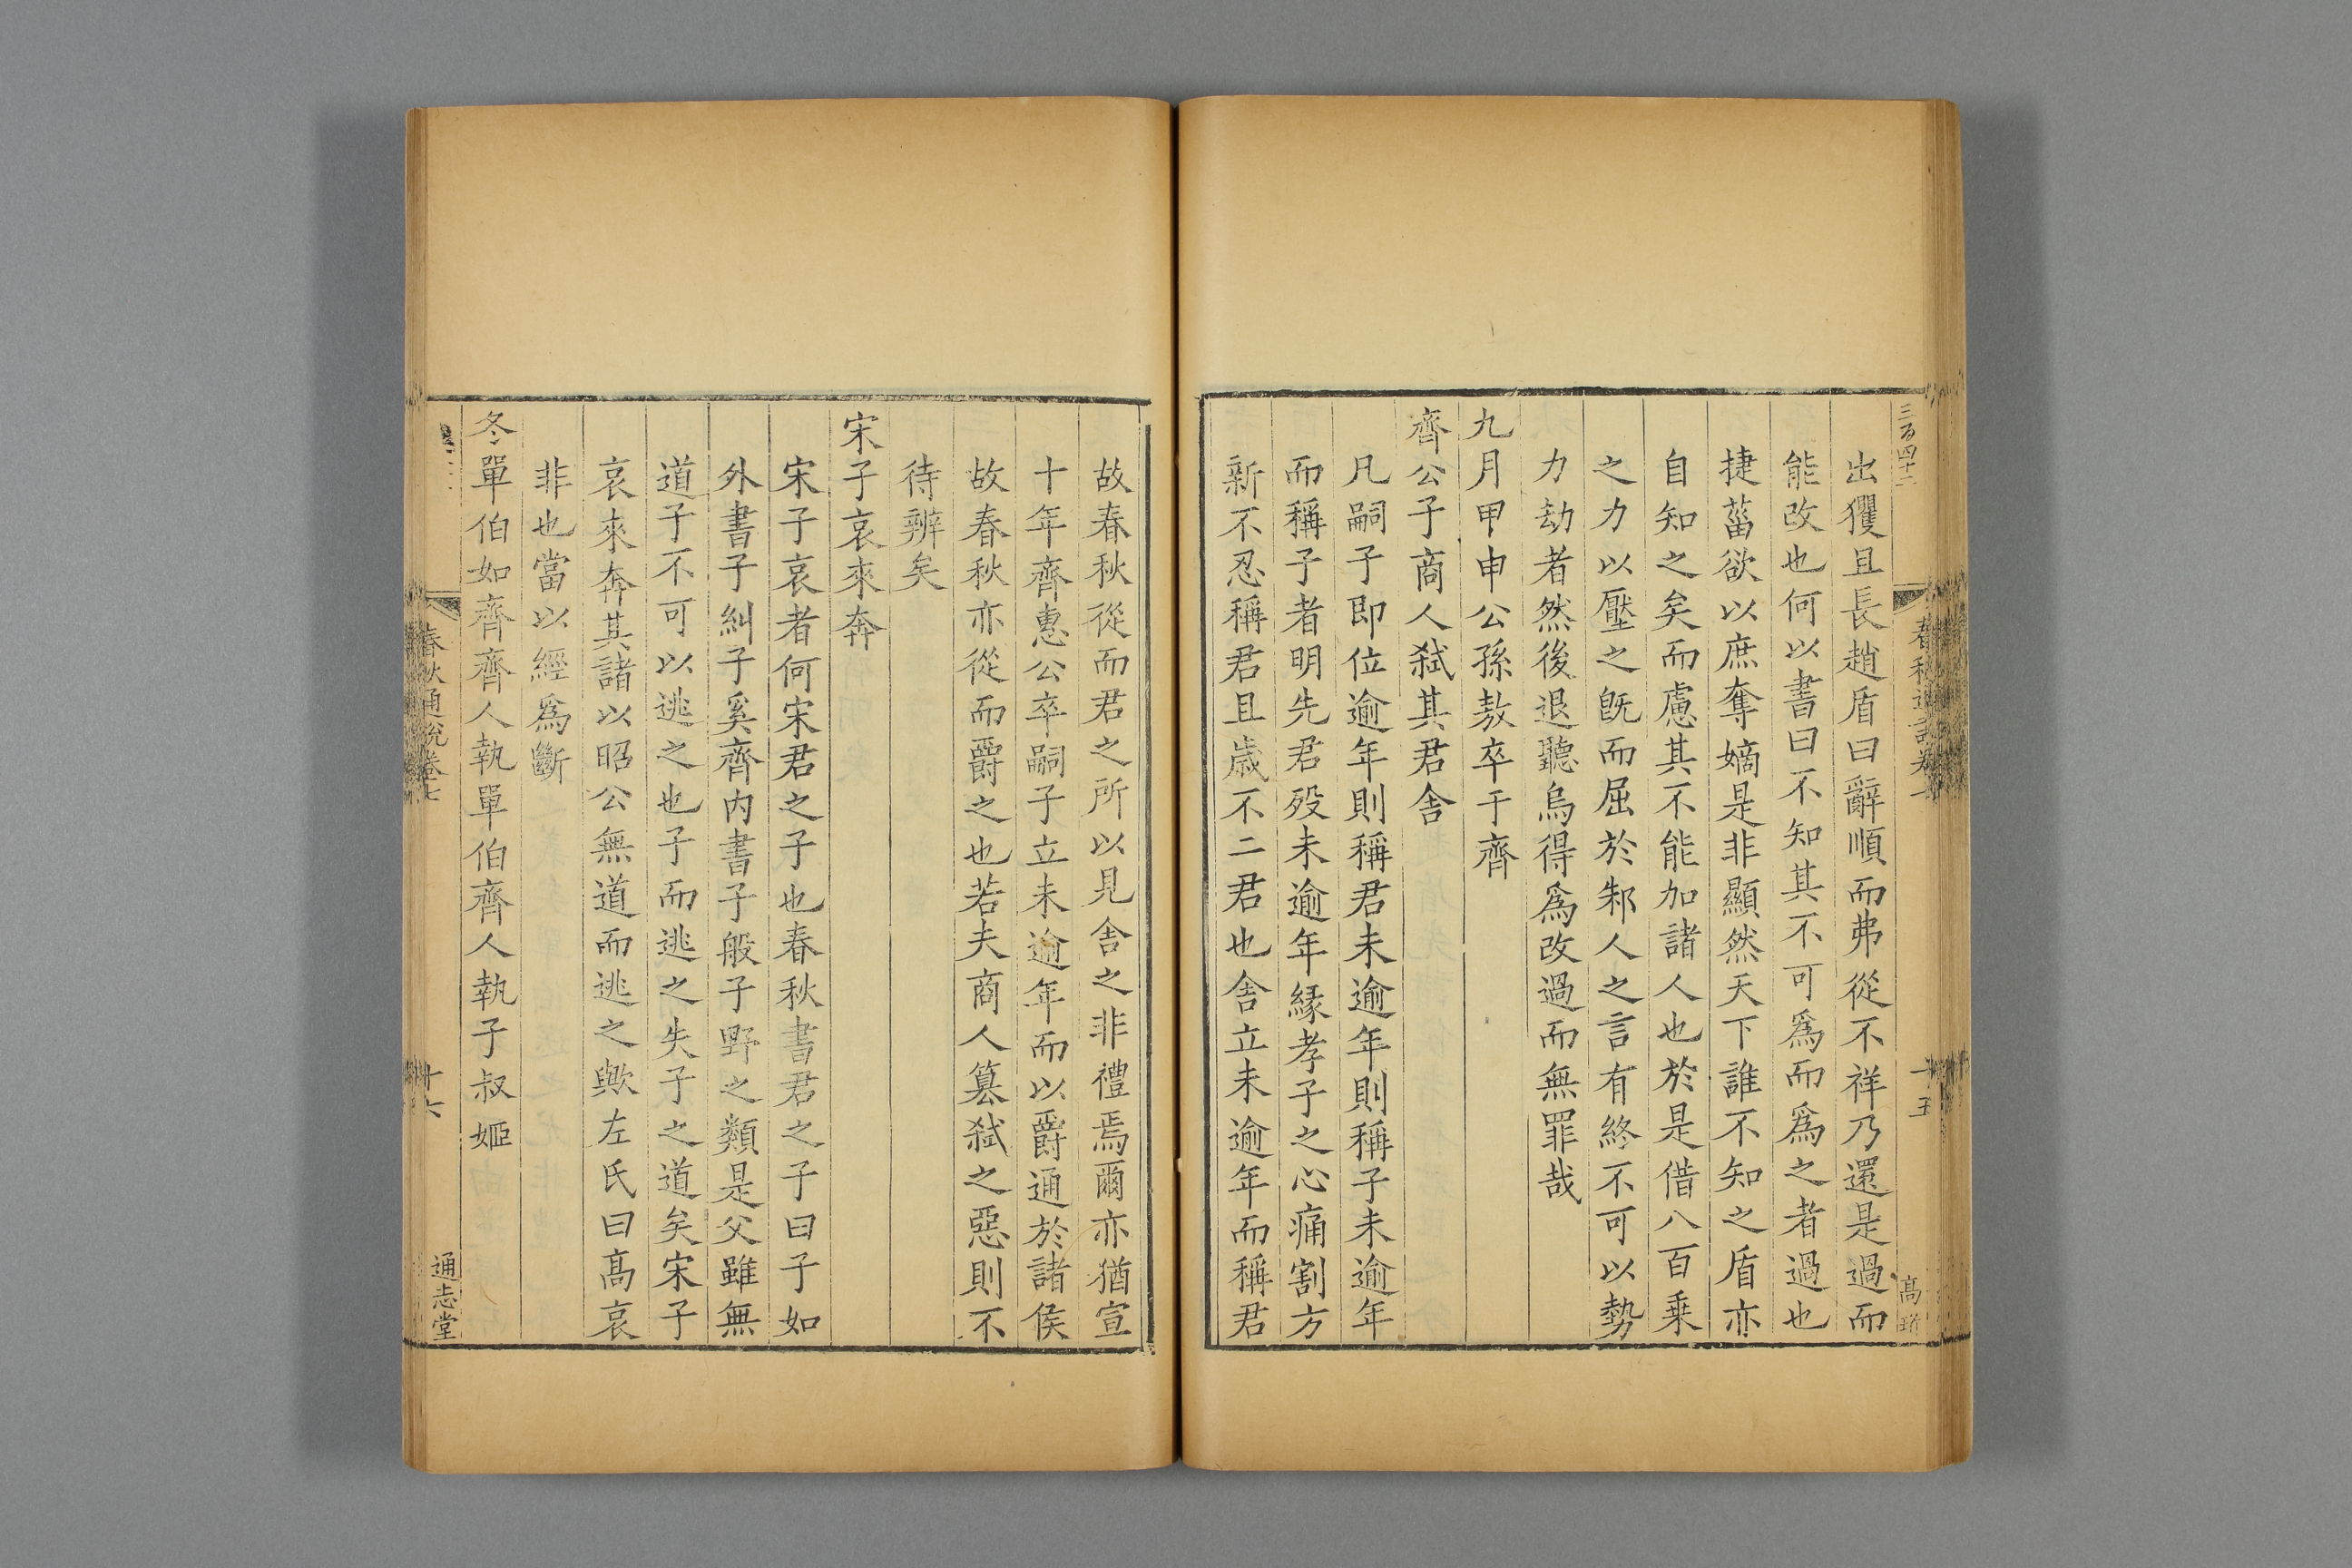 三百四十二
春秋通說卷
十五
高珩
出貜且長趙盾曰辭順而弗從不祥乃還是過而
能改也何以書曰不知其不可爲而爲之者過也
捷菑欲以庶奪嫡是非顯然天下誰不知之盾亦
自知之矣而慮其不能加諸人也於是借八百乗
之力以壓之旣而屈於邾人之言有終不可以勢
力劫者然後退聽烏得爲改過而無罪哉
九月甲申公孫敖卒于齊
齊公子商人弑其君舍
凡嗣子即位逾年則稱君未逾年則稱子未逾年
而稱子者明先君殁未逾年緣孝子之心痛割方
新不忍稱君且歲不二君也舍立未逾年而稱君
故春秋從而君之所以見舍之非禮焉爾亦猶宣
十年齊惠公卒嗣子立未逾年而以爵通於諸侯
故春秋亦從而爵之也若夫商人簒弑之惡則不
待辨矣
宋子哀來奔
宋子哀者何宋君之子也春秋書君之子曰子如
外書子糾子奚齊内書子般子野之類是父雖無
道子不可以逃之也子而逃之失子之道矣宋子
哀來奔其諸以昭公無道而逃之歟左氏曰髙哀
非也當以經爲斷
冬單伯如齊齊人執單伯齊人執子叔姬
春秋通說卷七
十六
通志堂